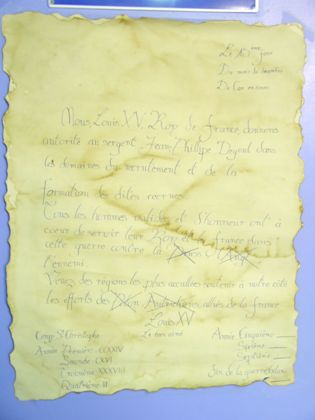 Le 10ième jour
Du mois de décembre
De l'an
Nous, Louis XV, Roy de france, donnons
autorité au sergent Jean-Philippe Dégeul dans
les domaines du recrutement et de la
formation des dites recrues
Tous les hommes valides et d'honneur ont à
coeur de servir leur Roy et la france dans
cette guerre contre la
l'ennemi
Venez des régions les plus acculées soutenir à notre côté
les efforts des alliés de la france
Louis XV
Camp St-Christophe
Année Première CCXXIV
Seconde CXVI
Troisième XXXVIII
Quatrième II
Année Cinquième
Sixième
Septième